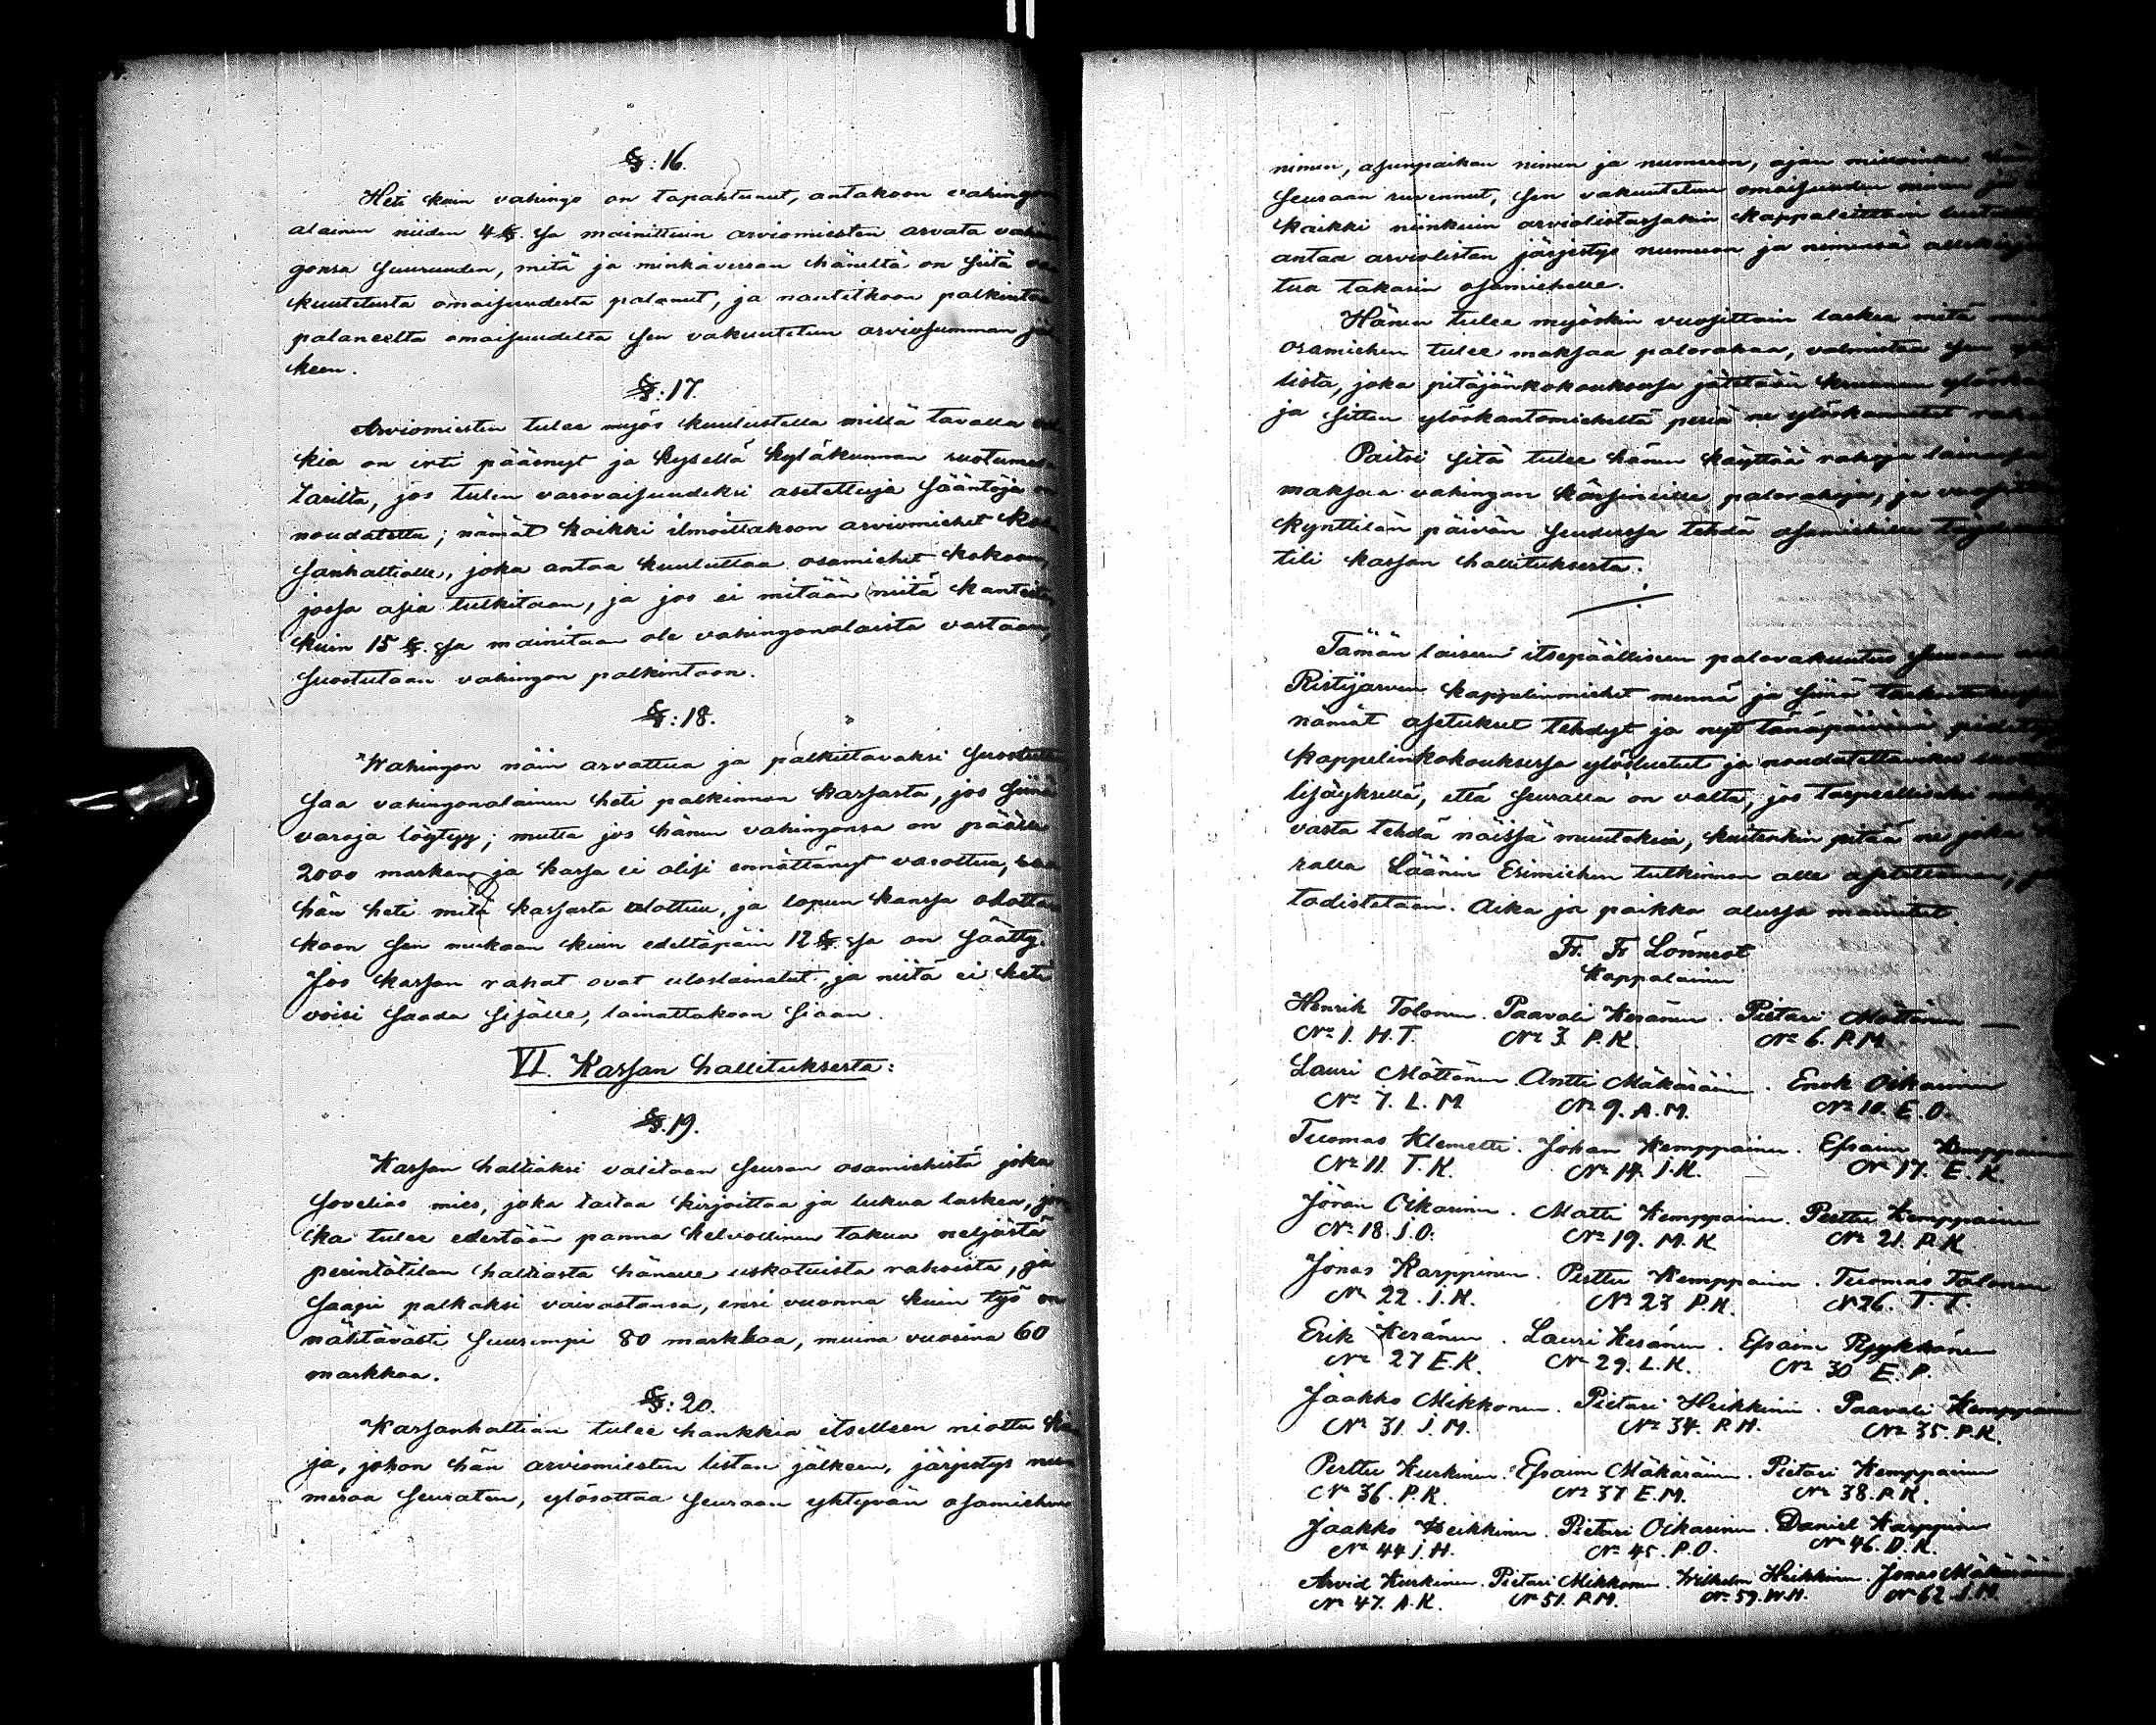 §: 16.
Heti kuin vahingo on tapahtunut, antakoon vahingon
alainen niiden 4 §. sa mainittuin arviomiesten arvata vahin
gonsa suuruuden, mitä ja minkäverran häneltä on siitä va
kuutetusta omaisuudesta palanut, ja nautitkoon palkintoa
palaneelta omaisuudelta sen vakuutetun arviosumman jäl
keen.
§: 17.
Arviomiesten tulee myös kuulustella millä tavalla val
kia on irti päässyt ja kysellä kyläkunnan ruotumes
tarilta, jos tulen varovaisuudeksi asetettuja sääntöjä on
noudatettu; nämät kaikki ilmoittakoon arviomiehet kas
sanhaltialle, joka antaa kuuluttaa osamiehet kokoon,
jossa asia tutkitaan, ja jos ei mitään niitä kanteita,
kuin 15 §. sa mainitaan ole vahingonalaista vastaan,
suostutaan vahingon palkintoon.
§: 18.
Wahingon näin arvattua ja palkittavaksi suostuttu
saa vahingonalainen heti palkinnon kassasta, jos siinä
varoja löytyy; mutta jos hänen vahingonsa on päälle
2000 markan ja kassa ei olisi ennättänyt varottua, saa
hän heti mitä kassasta ulottuu, ja lopun kanssa odotta
koon sen mukaan kuin edeltäpäin 12 §. sa on säätty.
Jos kassan rahat ovat uloslainatut, ja niitä ei heti
voisi saada sisälle, lainattakoon siaan.
VI. Kassan hallituksesta:
§. 19.
Kassan haltiaksi valitaan seuran osamiehistä joku
sovelias mies, joka taitaa kirjoittaa ja lukua laskea, jon
ka tulee edestään panna kelvollinen takuu neljästä
perintötilan haltiasta hänelle uskotuista rahoista, ja
saapi palkaksi vaivastansa, ensi vuonna kuin työ on
nähtävästi suurempi 80 markkaa, muina vuosina 60
markkaa.
§: 20.
Kassanhaltian tulee hankkia itselleen niottu kir
ja, johon hän arviomiesten listan jälkeen, järjestys num
meroa seuraten, ylösottaa seuraan yhtyvän osamiehen
nimen, asunpaikan nimen ja numeron, ajan milloinka hän
seuraan ruvennut, sen vakuutetun omaisuuden nimen ja
kaikki niinkuin arviolistassakin kappaleittain luetel
antaa arviolistan järjestys numeron ja nimensä allekirjoi
tua takasin osamiehelle.
Hänen tulee myöskin vuosittain laskea mitä
osamiehen tulee maksaa palorahaa, valmistaa sen
lista, joka pitäjänkokouksessa jätetään kruunun ylöskan
ja sitten ylöskantomieheltä periä ne ylöskannetut raha
Paitsi sitä tulee hänen käyttää rahoja lainassa
maksaa vahingon kärsineille palorahoja, ja vuosittain
kynttilän päivän seudussa tehdä osamiehille täydellinen
tili kassan hallituksesta.
Tämän laiseen itsepäälliseen palovakuutus seuraan
Ristijärven kappelinmiehet mennä ja siinä tarkoituksessa
nämät asetukset tehdyt ja nyt tänäpäivänä pidetyssä
kappelinkokouksessa ylösluetut ja noudatettaviksi
lisäyksellä, että seuralla on valta, jos tarpeelliseksi
vasta tehdä näissä muutoksia, kuitenkin pitää ne joka
ralla Läänin Esimiehen tutkinnon alle asetettaman;
todistetaan. Aika ja paikka alussa mainitut.
Fr. Fr Lönnrot
Kappalainen
Henrik Tolonen. Paavali Keränen. Pietari Möttönen
No 1. H.T. No 3. P.K. No 6. P.M.
Lauri Möttönen Antti Mäkäräinen. Erik Oikarinen
No 7. L.M. No 9. A.M. No 10. E.O.
Tuomas Klemetti. Johan Kemppainen. Efraim Kemppainen
No 11. T.K. No 14. J.K. No 17. E.K.
Jöran Oikarinen. Matti Kemppainen. Perttu Kemppainen
No 18. J.O. No 19. M.K. No 21. P.K.
Jonas Karppinen. Perttu Kemppainen. Tuomas Tolonen
No 22. J.K. No 23 P.K. No 26. T.T.
Erik Keränen. Lauri Keränen. Efraim Pyykkönen
No 27 E.K. No 29. L.K. No 30 E.P.
Jaakko Mikkonen. Pietari Heikkinen. Paavali Kemppainen
No 31. J.M. No 34. P.H. No 35. P.K.
Perttu Kurkinen. Efraim Mäkäräinen. Pietari Kemppainen
No 36. P.K. No 37 E.M. No 38. P.K.
Jaakko Heikkinen. Pietari Oikarinen. Daniel Karppinen
No 44 J.H. No 45. P.O. No 46. D.K.
Arvid Kurkinen. Pietari Mikkonen. Wilhelm Heikkinen. Jonas Mäkäräinen
No 47. A.K. No 51. P.M. No 59. W.H. No 62. J.M.